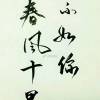 春風十里
不如你